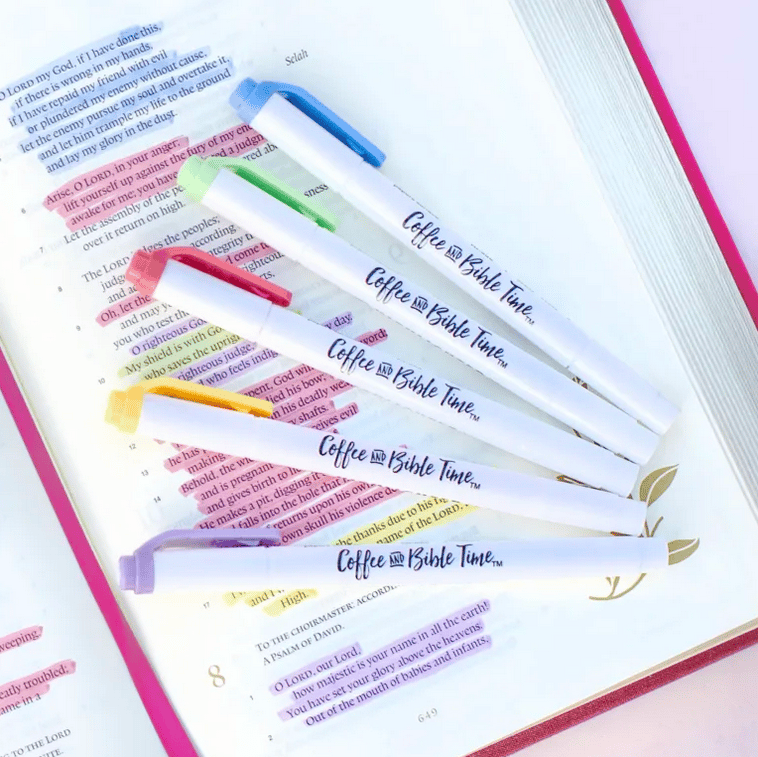 O LORD my God, if I have done this,
if there is wrong in my hands,
if I have repaid my friend with evil
or plundered my enemy without cause,
let the enemy pursue my soul and overtake it,
and let him trample my life to the ground
and lay my glory in the dust.
Selah
6 Arise, O LORD, in your anger;
lift yourself up against the fury of my
awake for me; you have
7 Let the assembly of the
over it return on high.
8 The LORD judges the peoples;
according
integrity
9 Oh, let the
and may
you who test the
O righteous God
10 My shield is with God
who saves the upright
righteous judge,
who feels
day
word;
his bow;
his deadly
shafts.
evil
12
13
he has
making
14 Behold, the
and is pregnant
and gives birth to
He makes a pit, digging it
falls into the hole that
returns upon his own
own skull his violence
the thanks due to his
name of the LORD,
17 and I
High.
Coffee AND Bible Time™
Coffee AND Bible Time™
Coffee AND Bible Time™
Coffee AND Bible Time™
Coffee AND Bible Time™
TO THE CHOIRMASTER:
A PSALM OF DAVID.
8
1 O LORD, our Lord,
how majestic is your name in all the earth!
You have set your glory above the heavens.
2 Out of the mouth of babies and infants,
649
weeping.
troubled;
in a
TO THE LORD